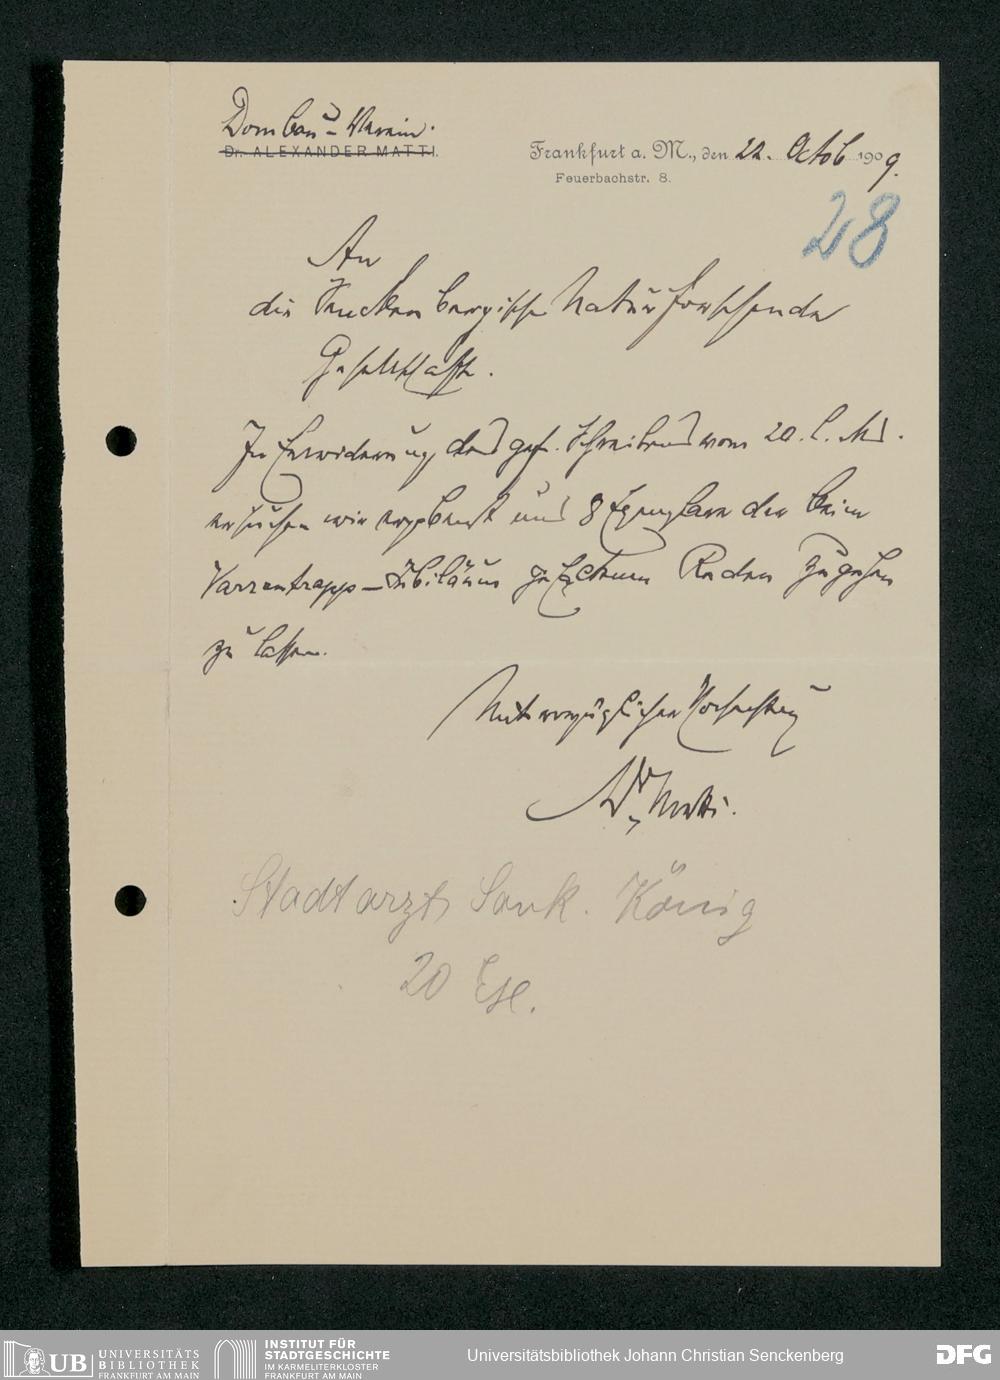 Dombau-Verein.
Dr. ALEXANDER MATTI.
Frankfurt a. M., den 22. Octob 1909.
Feuerbachstr. 8.
28
An
die Senckenbergische Naturforschende
Gesellschaft.
In Erwiderung des gef. Schreibens vom 20. l. Mts.
ersuchen wir ergebenst uns 8 Exemplare der beim
Varrentrapp-Jubiläum gehaltenen Reden zugehen
zu lassen.
Mit vorzüglicher Hochachtung
Dr. Matti.
Stadtarzt Sank. König
20 Exe.
UB UNIVERSITÄTS
BIBLIOTHEK
FRANKFURT AM MAIN
INSTITUT FÜR
STADTGESCHICHTE
IM KARMELITERKLOSTER
FRANKFURT AM MAIN
Universitätsbibliothek Johann Christian Senckenberg
DFG